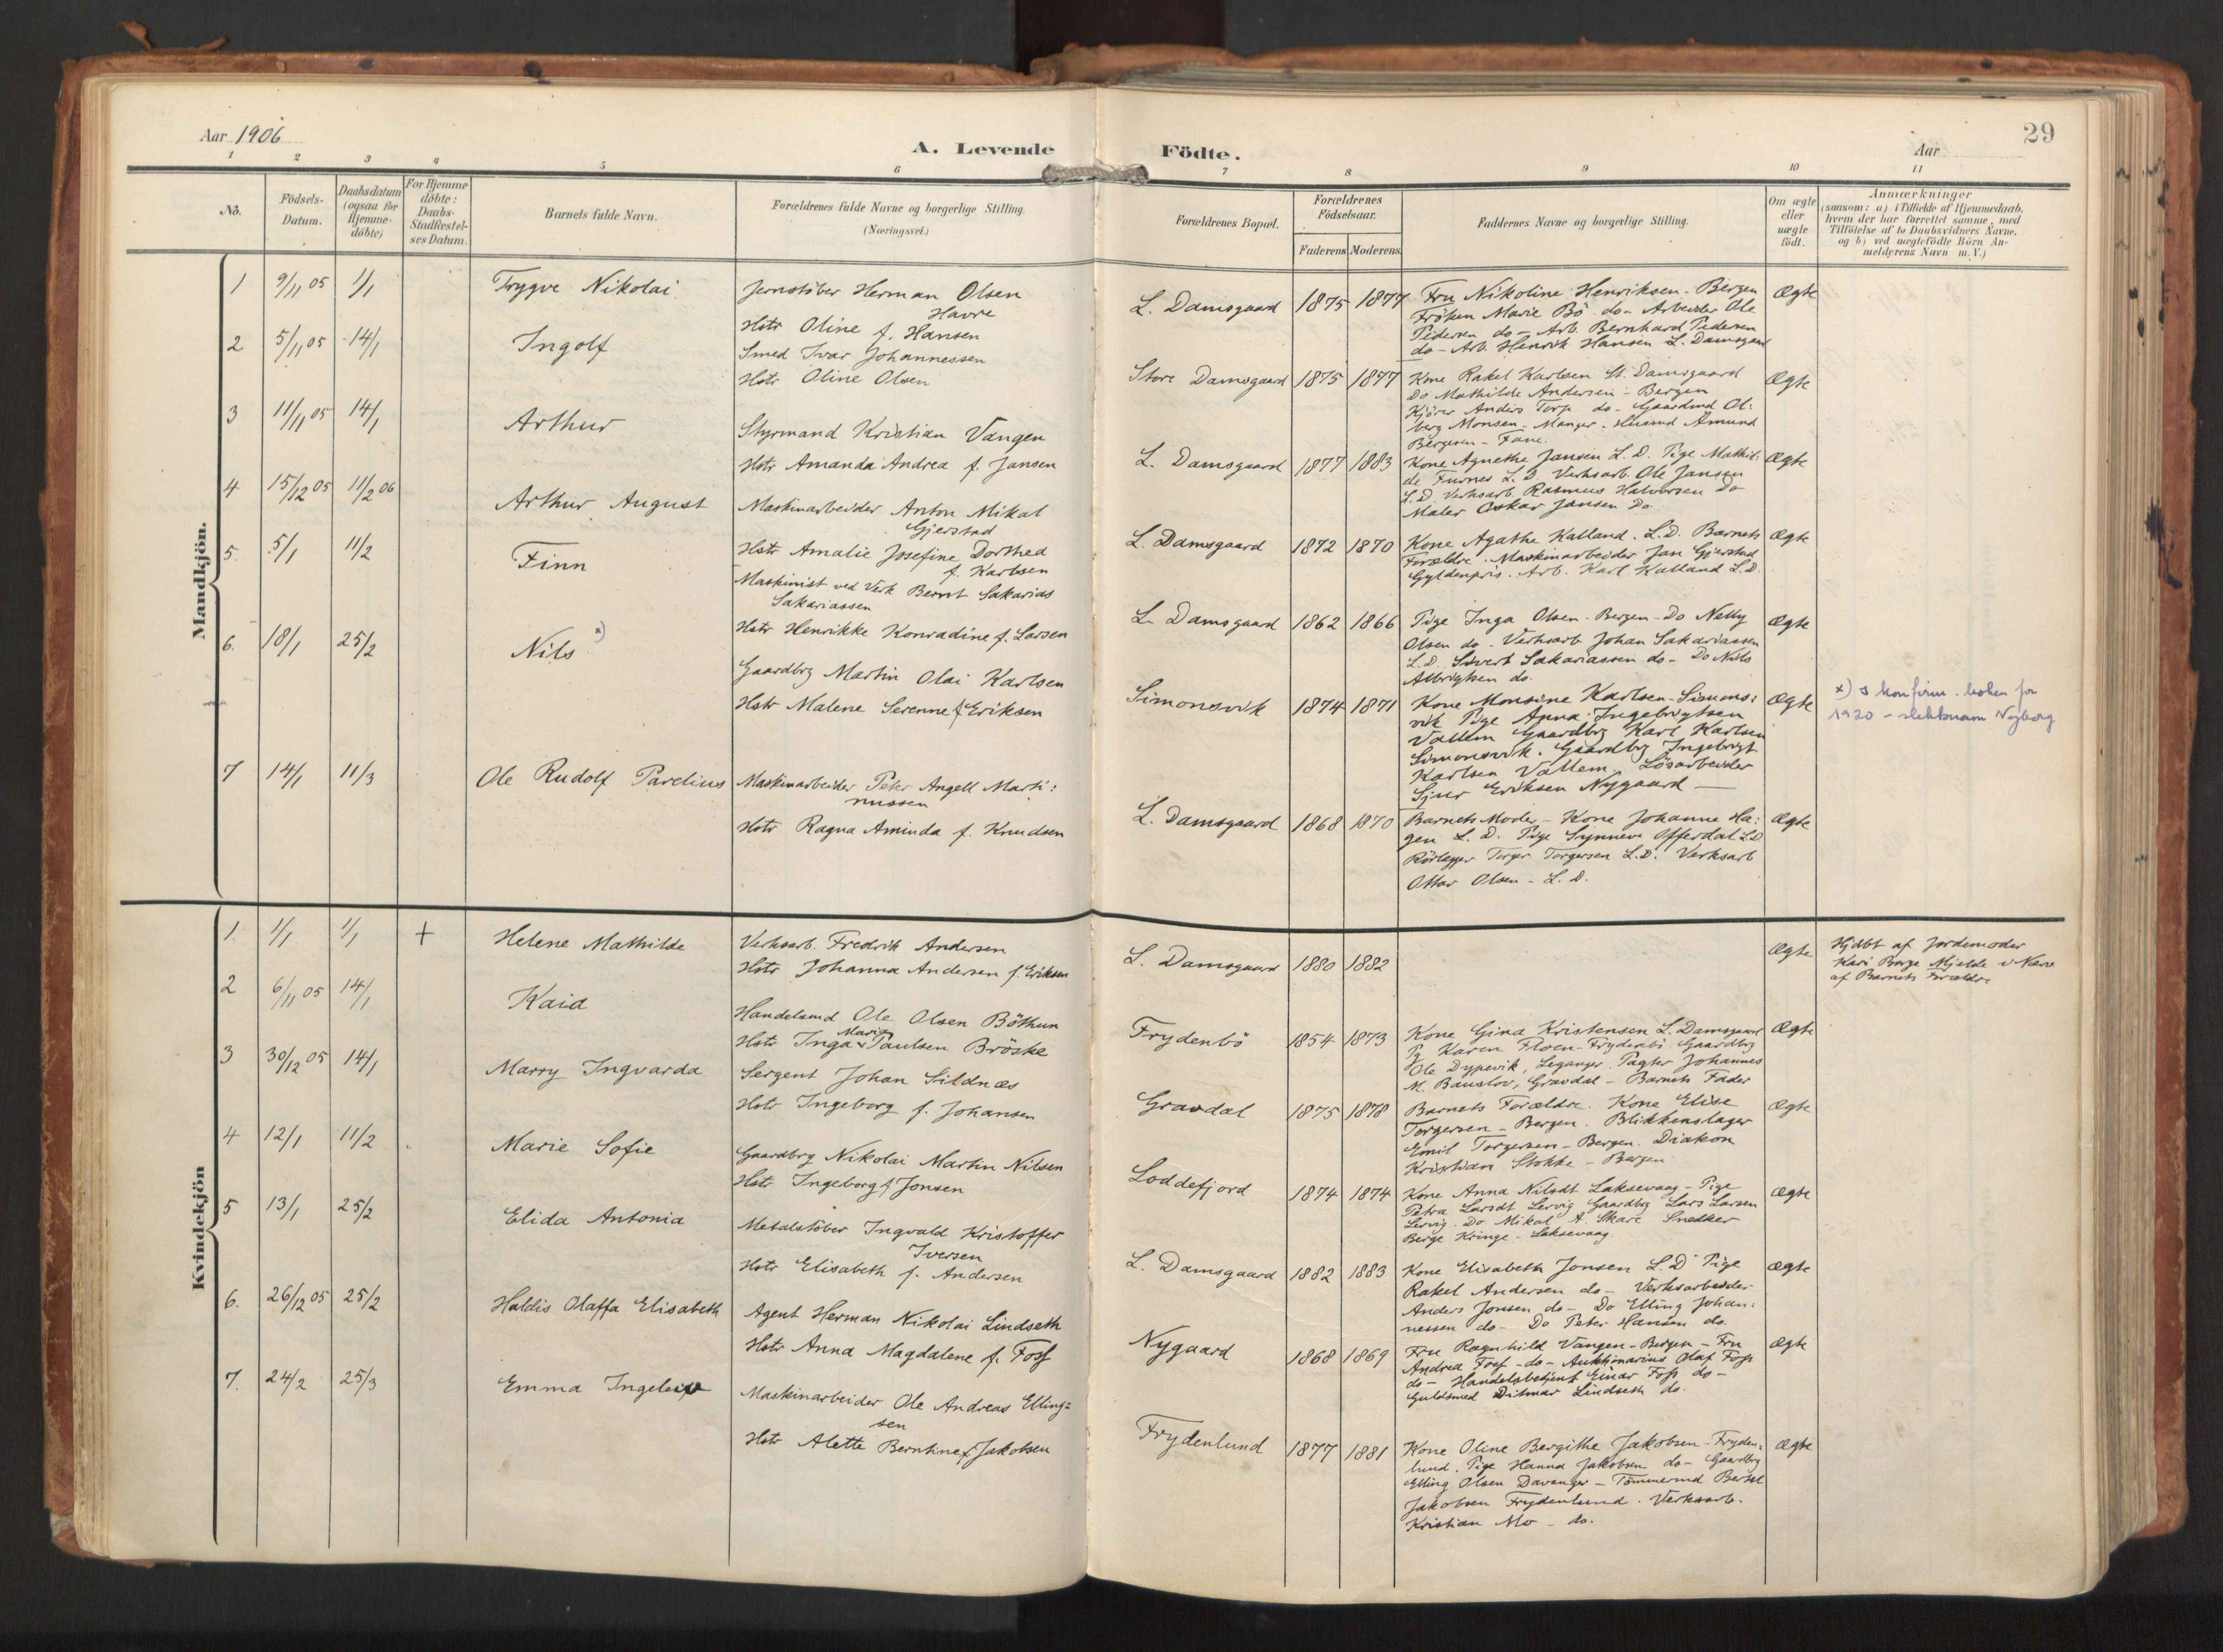 Aar 1906
A. Levende
Födte.
Aar
29
1 2 3 4 5 6 7 8 9 10 11
No.
Födsels-Datum.
Daabsdatum (ogsaa for Hjemme-döbte)
For Hjemme döbte: Daabs-Stadfæstel-ses Datum.
Barnets fulde Navn.
Forældrenes fulde Navne og borgerlige Stilling. (Næringsvei.)
Forældrenes Bopæl.
Forældrenes Födselsaar.
Faderens Moderens
Faddernes Navne og borgerlige Stilling.
Om ægte eller uægte födt.
Anmærkninger
(saasom: a) i Tilfælde af Hjemmedaab,
hvem der har forrettet samme, med
Tilföielse af to Daabsvidners Navne.
og b) ved uægtefödte Börn An-
melderens Navn m.V.)
Mandkjön.
1 9/11 05 1/1 Trygve Nikolai
Jernstöber Herman Olsen
Havre
Hstr Oline f. Hansen
L. Damsgaard 1875 1877
Fru Nikoline Henriksen - Bergen
Fröken Marie Bö do - Arbeider Ole
Pedersen do - Arb. Bernhard Pedersen
do - Arb. Henrik Hansen L. Damsgaard
Ægte
2 5/11 05 14/1 Ingolf
Smed Ivar Johannessen
Hstr Oline Olsen
Store Damsgaard 1875 1877
Kone Rakel Karlsen St. Damsgaard
Do Mathilde Andersen - Bergen
Kjörer Anders Torp do - Gaardmd Ol:
berg Monsen - Manger - Husmd Amund
Bergesen - Fane.
Ægte
3 11/11 05 14/1 Arthur
Styrmand Kristian Vangen
Hstr Amanda Andrea f. Jansen
L. Damsgaard 1877 1883
Kone Agnethe Jansen L. D. Pige Mathil:
de Furnes L. D. Verksarb. Ole Jansen
L. D. Verksarb. Rasmus Halvorsen Do
Maler Oskar Jansen Do.
Ægte
4 15/12 05 11/2 06 Arthur August
Maskinarbeider Anton Mikal
Gjerstad
Hstr Amalie Josefine Dorthea
f. Karlsen
L. Damsgaard 1872 1870
Kone Agathe Kalland. L. D. Barnets
Forældre. Maskinarbeider Jan Gjerstad
Gyldenpris. Arb. Karl Kalland L. D.
Ægte
5. 5/1 11/2 Finn
Maskinist ved Verk Bernt Sakarias
Sakariassen
Hstr Henrikke Konradine f. Larsen
L. Damsgaard 1862 1866
Pige Inga Olsen - Bergen - Do Nelly
Olsen do - Verksarb Johan Sakariassen
L. D. Sivert Sakariassen do - Do Nils
Albrigtsen do.
Ægte
6. 18/1 25/2 Nils x)
Gaardbrg Martin Olai Karlsen
Hstr Malene Serenne f. Eriksen
Simonsvik 1874 1871
Kone Monsine Karlsen - Simons:
vik Pige Anna Ingebrigtsen
Vallem Gaardbrg Karl Karlsen
Simonsvik. Gaardbrg Ingebrigt
Karlsen Vallem. Lösarbeider
Sjur Eriksen Nygaard
Ægte
x) I konfirm. boken for
1920 - slektsnavn Nyborg
7 14/1 11/3 Ole Rudolf Parelius
Maskinarbeider Peter Angell Marti:
nussen
Hstr Ragna Aminda f. Knudsen
L. Damsgaard 1868 1870
Barnets Moder - Kone Johanne Ha:
gen L. D. Pige Synneve Offerdal L. D
Rörlegger Torger Torgersen L. D. Verksarb
Ottar Olsen - L. D.
Ægte
Kvindekjön
1. 1/1 1/1 + Helene Mathilde
Verksarb. Fredrik Andersen
Hstr Johanna Andersen f. Eriksen
L. Damsgaard 1880 1882
Ægte
Hjdbt af Jordemoder
Kari Borge Mjelde i Nærv
af Barnets Forældre
2 6/11 05 14/1 Kaia
Handelsmd Ole Olsen Böthun
Hstr Inga Marie Paulsen Bröske
Frydenbö 1854 1873
Kone Gina Kristensen L. Damsgaard
Pg Karen Floen - Frydenbö. Gaardbrg
Ole Dypevik, Leganger. Pagter Johannes
M. Bauslov, Gravdal - Barnets Fader
Ægte
3 30/12 05 14/1 Marry Ingvarda
Sergent Johan Sildnæs
Hstr Ingeborg f. Johansen
Gravdal 1875 1878
Barnets Forældre. Kone Elise
Torgersen - Bergen. Blikkenslager
Emil Torgersen - Bergen. Diakon
Kristian Stokke - Bergen
Ægte
4 12/1 11/2 Marie Sofie
Gaardbrg Nikolai Martin Nilsen
Hstr Ingeborg f. Jonsen
Loddefjord 1874 1874
Kone Anna Nilsdt Laksevaag - Pige
Petra Larsdt Lervig Gaardbrg Lars Larsen
Lervig. Do Mikal A. Skare Snedker
Berge Kringe - Laksevaag.
Ægte
5 13/1 25/2 Elida Antonia
Metalstöber Ingvald Kristoffer
Iversen
Hstr Elisabeth f. Andersen
L. Damsgaard 1882 1883
Kone Elisabeth Jonsen L. D Pige
Rakel Andersen do - Verksarbeider
Anders Jonsen do - Do Elling Johan:
nessen do - Do Peter Hansen do.
Ægte
6. 26/12 05 25/2 Haldis Olaffa Elisabeth
Agent Herman Nikolai Lindseth
Hstr Anna Magdalene f. Foss
Nygaard 1868 1869
Fru Ragnhild Vangen - Bergen - Fru
Andrea Foss - do - Auktionarius Olaf Foss
do - Handelsbetjent Einar Foss do -
Guldsmed Ditmar Lindseth do.
Ægte
7. 24/2 25/3 Emma Ingeleiv
Maskinarbeider Ole Andreas Elling-
sen
Hstr Alette Berntine f. Jakobsen
Frydenlund 1877 1881
Kone Oline Bergithe Jakobsen - Fryden:
lund. Pige Hanna Jakobsen do - Gaardbrg
Elling Olsen Davanger - Tömmermd Bertel
Jakobsen Frydenlund. Verksarb.
Kristian Mo - do.
Ægte